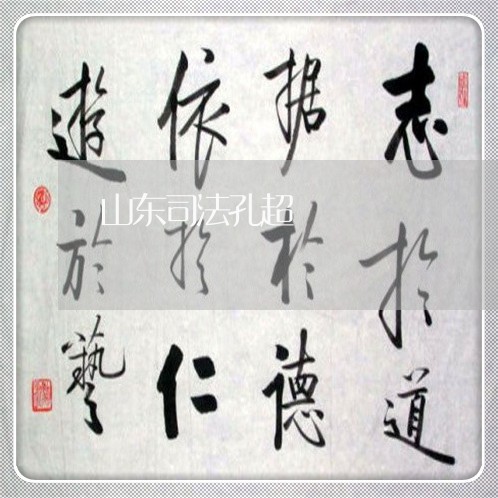 志於道
据於德
依於仁
遊於藝
山东司法孔超